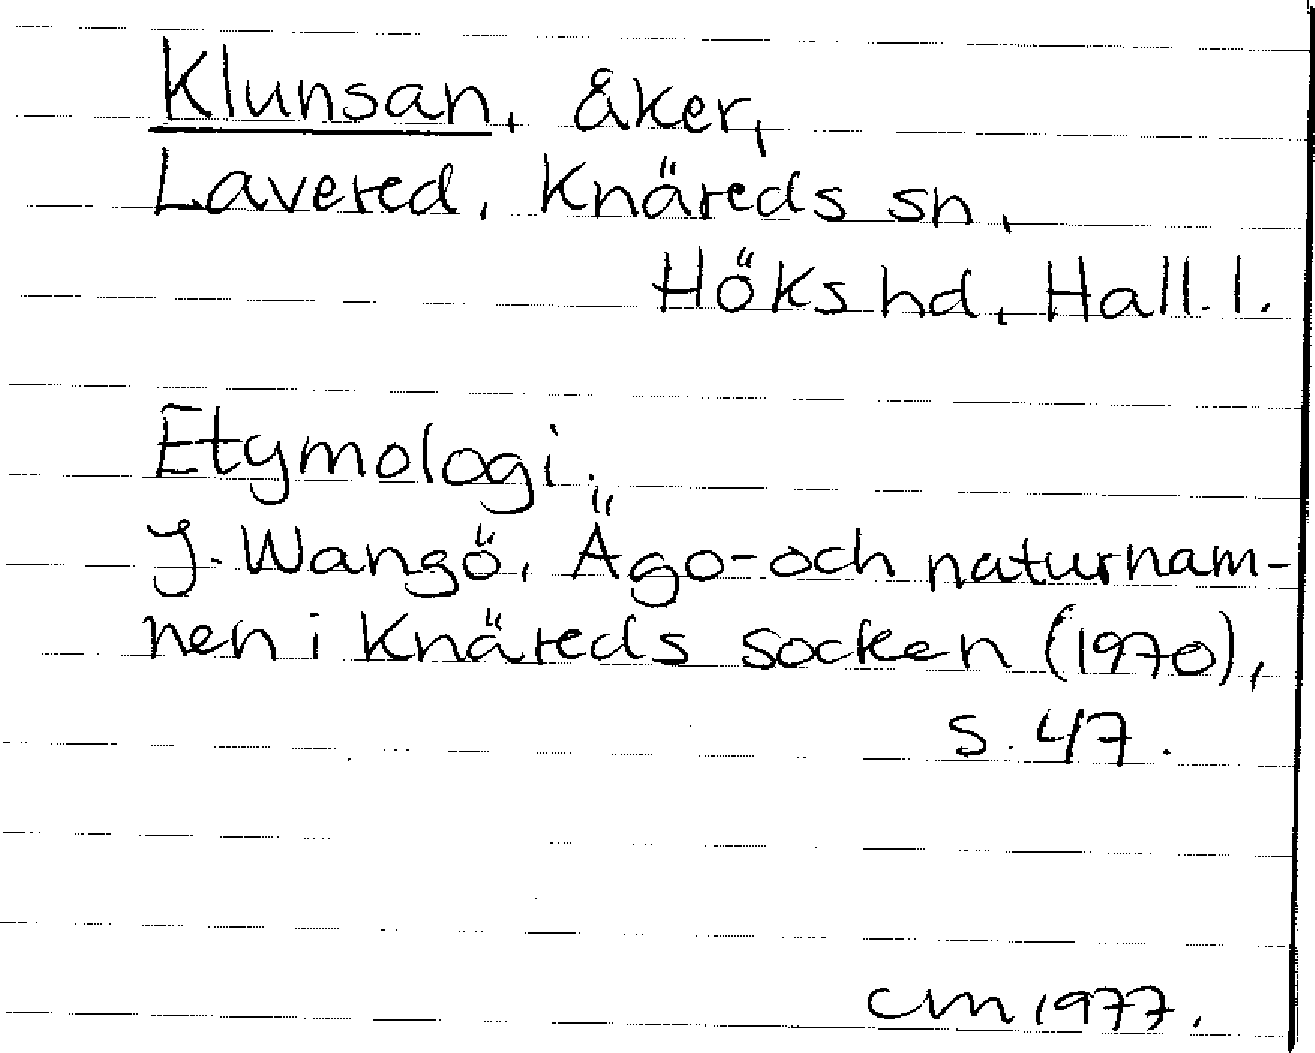 Klunsan, åker,
Lavered, Knäreds sn,
Höks hd, Hall. l.
Etymologi.
J. Wangö, Ägo- och naturnam-
nen i Knäreds socken (1970),
s. 47.
CM 1977.